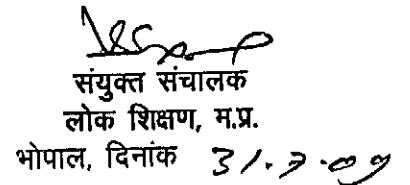 संयुक्त संचालक
लोक शिक्षण, म.प्र.
भोपाल, दिनांक 31.7.09